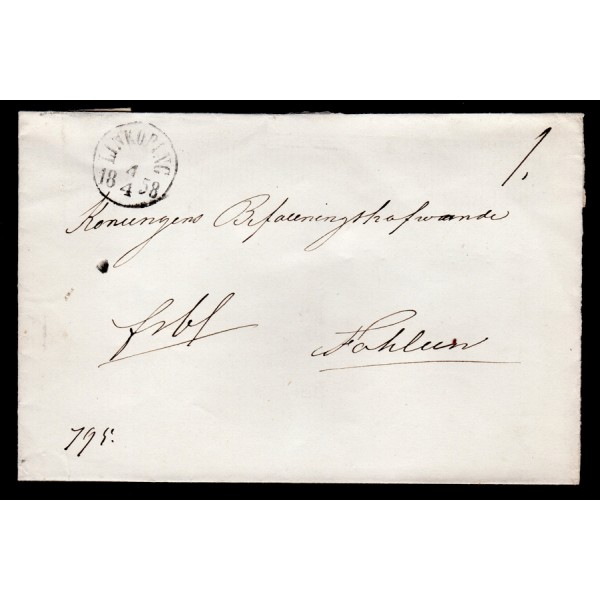 LINKÖPING
4
18 58
4
1.
Konungens Befallningshafwande
frbf
Fahlun
795.